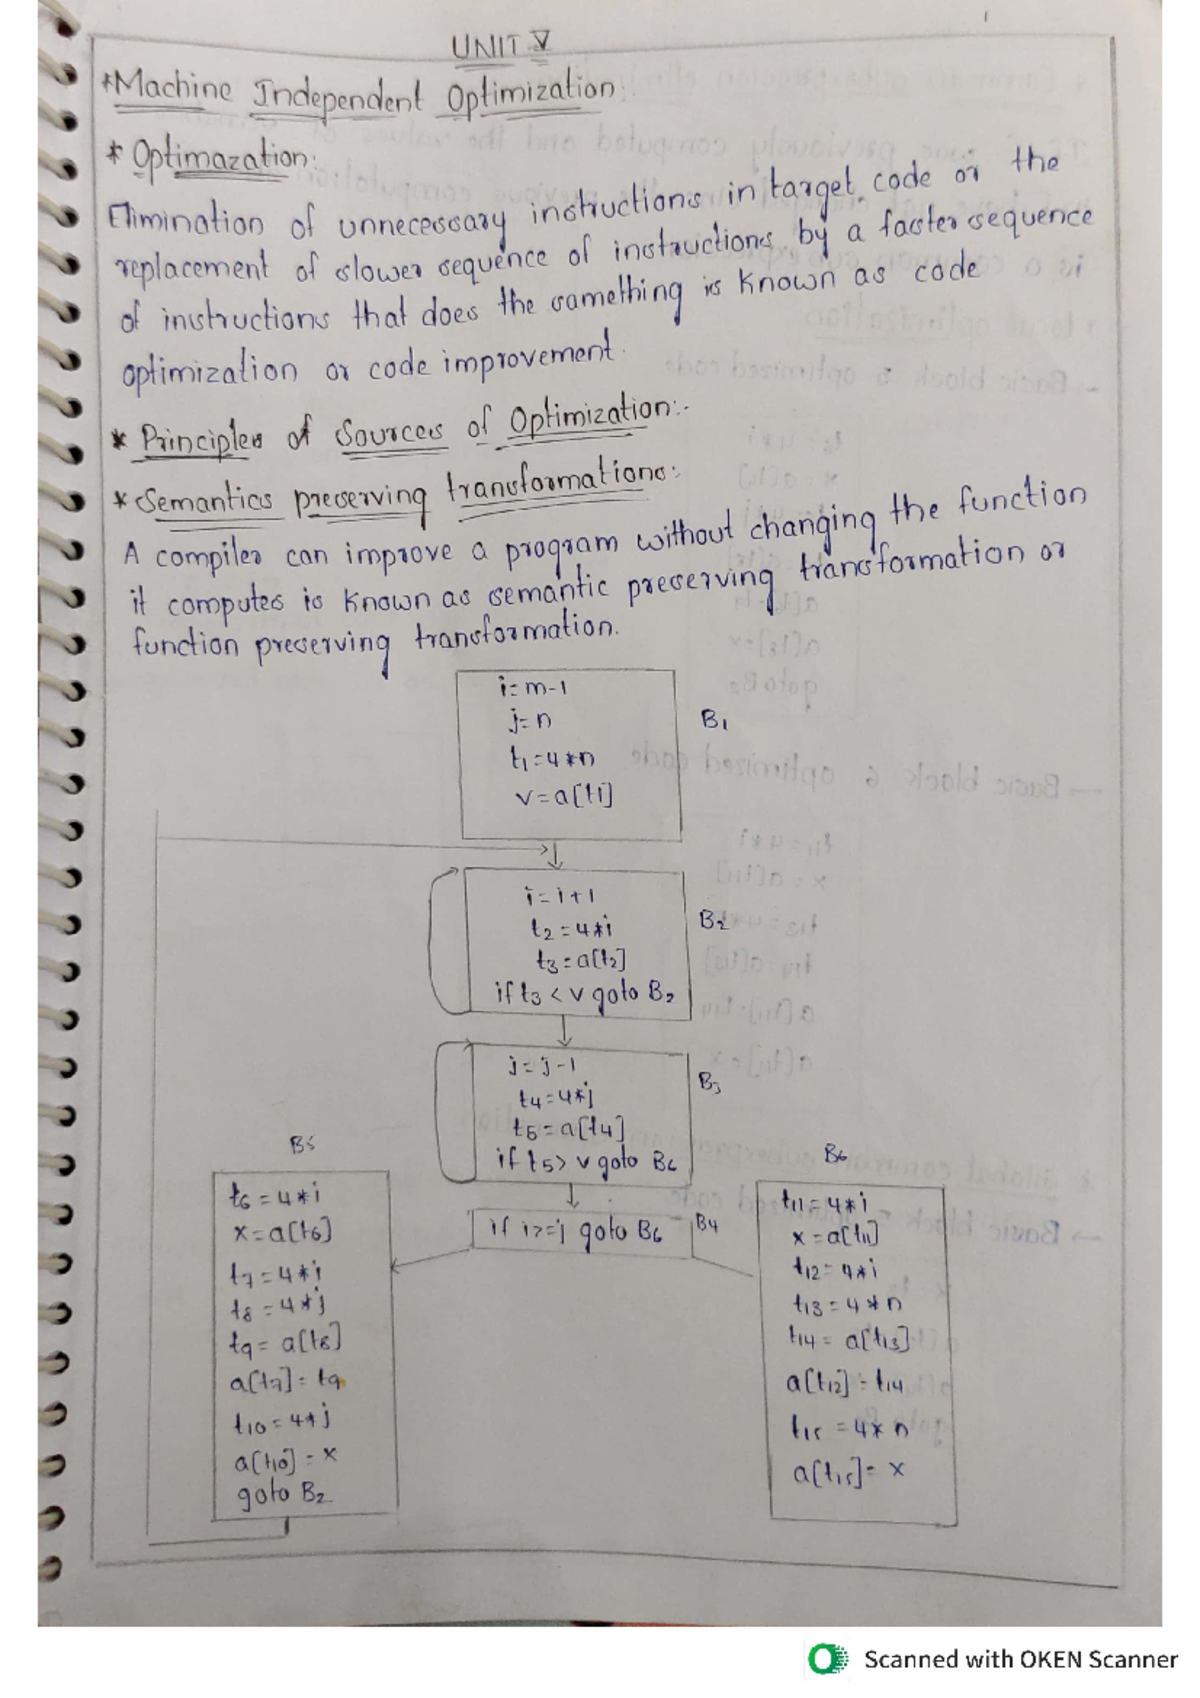 UNIT V
*Machine Independent Optimization:
* Optimazation:
Elimination of unnecessary instructions in target code or the
replacement of slower sequence of instructions by a faster sequence
of instructions that does the samething is known as code
optimization or code improvement.
* Principles of Sources of Optimization:-
* Semantics preserving transformations:
A compiler can improve a program without changing the function
it computes is known as semantic preserving transformation or
function preserving transformation.
i=m-1
j=n
t1=4*n
v=a[t1]
B1
i=i+1
t2=4*i
t3=a[t2]
if t3<v goto B2
B2
j=j-1
t4=4*j
t5=a[t4]
if t5>v goto B6
B3
if i>=j goto B6
B4
B5
t6=4*i
x=a[t6]
t7=4*i
t8=4*j
t9=a[t8]
a[t7]=t9
t10=4*j
a[t10]=x
goto B2
B6
t11=4*i
x=a[t11]
t12=4*i
t13=4*n
t14=a[t13]
a[t12]=t14
t15=4*n
a[t15]=x
Scanned with OKEN Scanner